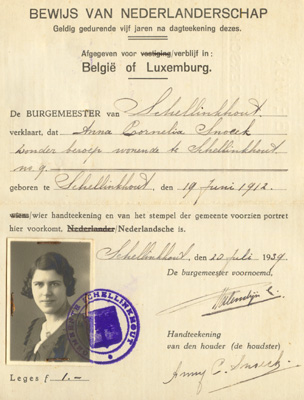 BEWIJS VAN NEDERLANDERSCHAP
Geldig gedurende vijf jaren na dagteekening dezes.
Afgegeven voor vestiging/verblijf in:
België of Luxemburg.
De BURGEMEESTER van Schellinkhout,
verklaart, dat Anna Cornelia Snoeck
zonder beroep wonende te Schellinkhout
no. 9.
geboren te Schellinkhout, den 19 Juni 1912.
wiens/wier handteekening en van het stempel der gemeente voorzien portret
hier voorkomt. Nederlander/Nederlandsche is.
Schellinkhout, den Juli 1939
De burgemeester voornoemd,
GEMEENTE SCHELLINKHOUT
Handteekening
van den houder (de houdster)
Anny C. Snoeck.
Leges f 1.-